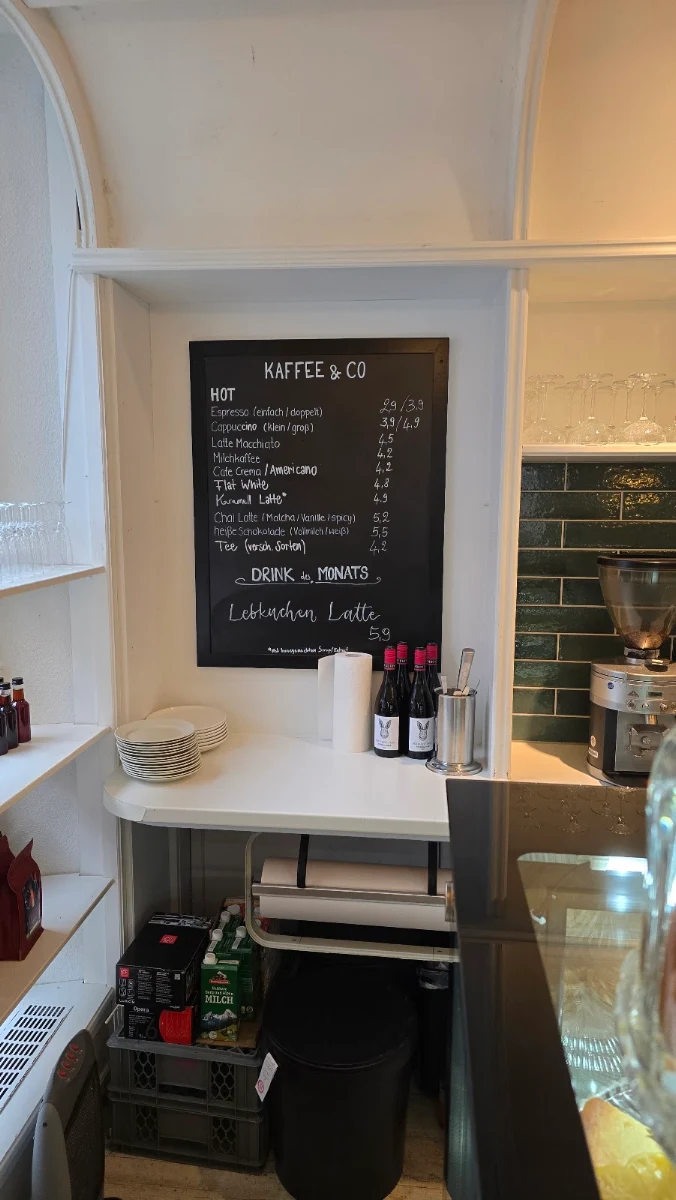 KAFFEE & CO
HOT
Espresso (einfach/doppelt) 2,9/3,9
Cappuccino (klein/groß) 3,9/4,9
Latte Macchiato 4,5
Milchkaffee 4,2
Cafe Crema/Americano 4,2
Flat White 4,8
Karamell Latte* 4,9
Chai Latte (Matcha/Vanille/spicy) 5,2
heiße Schokolade (Vollmilch/weiß) 5,5
Tee (versch. Sorten) 4,2
DRINK des MONATS
Lebkuchen Latte
5,9
Opera
MILCH